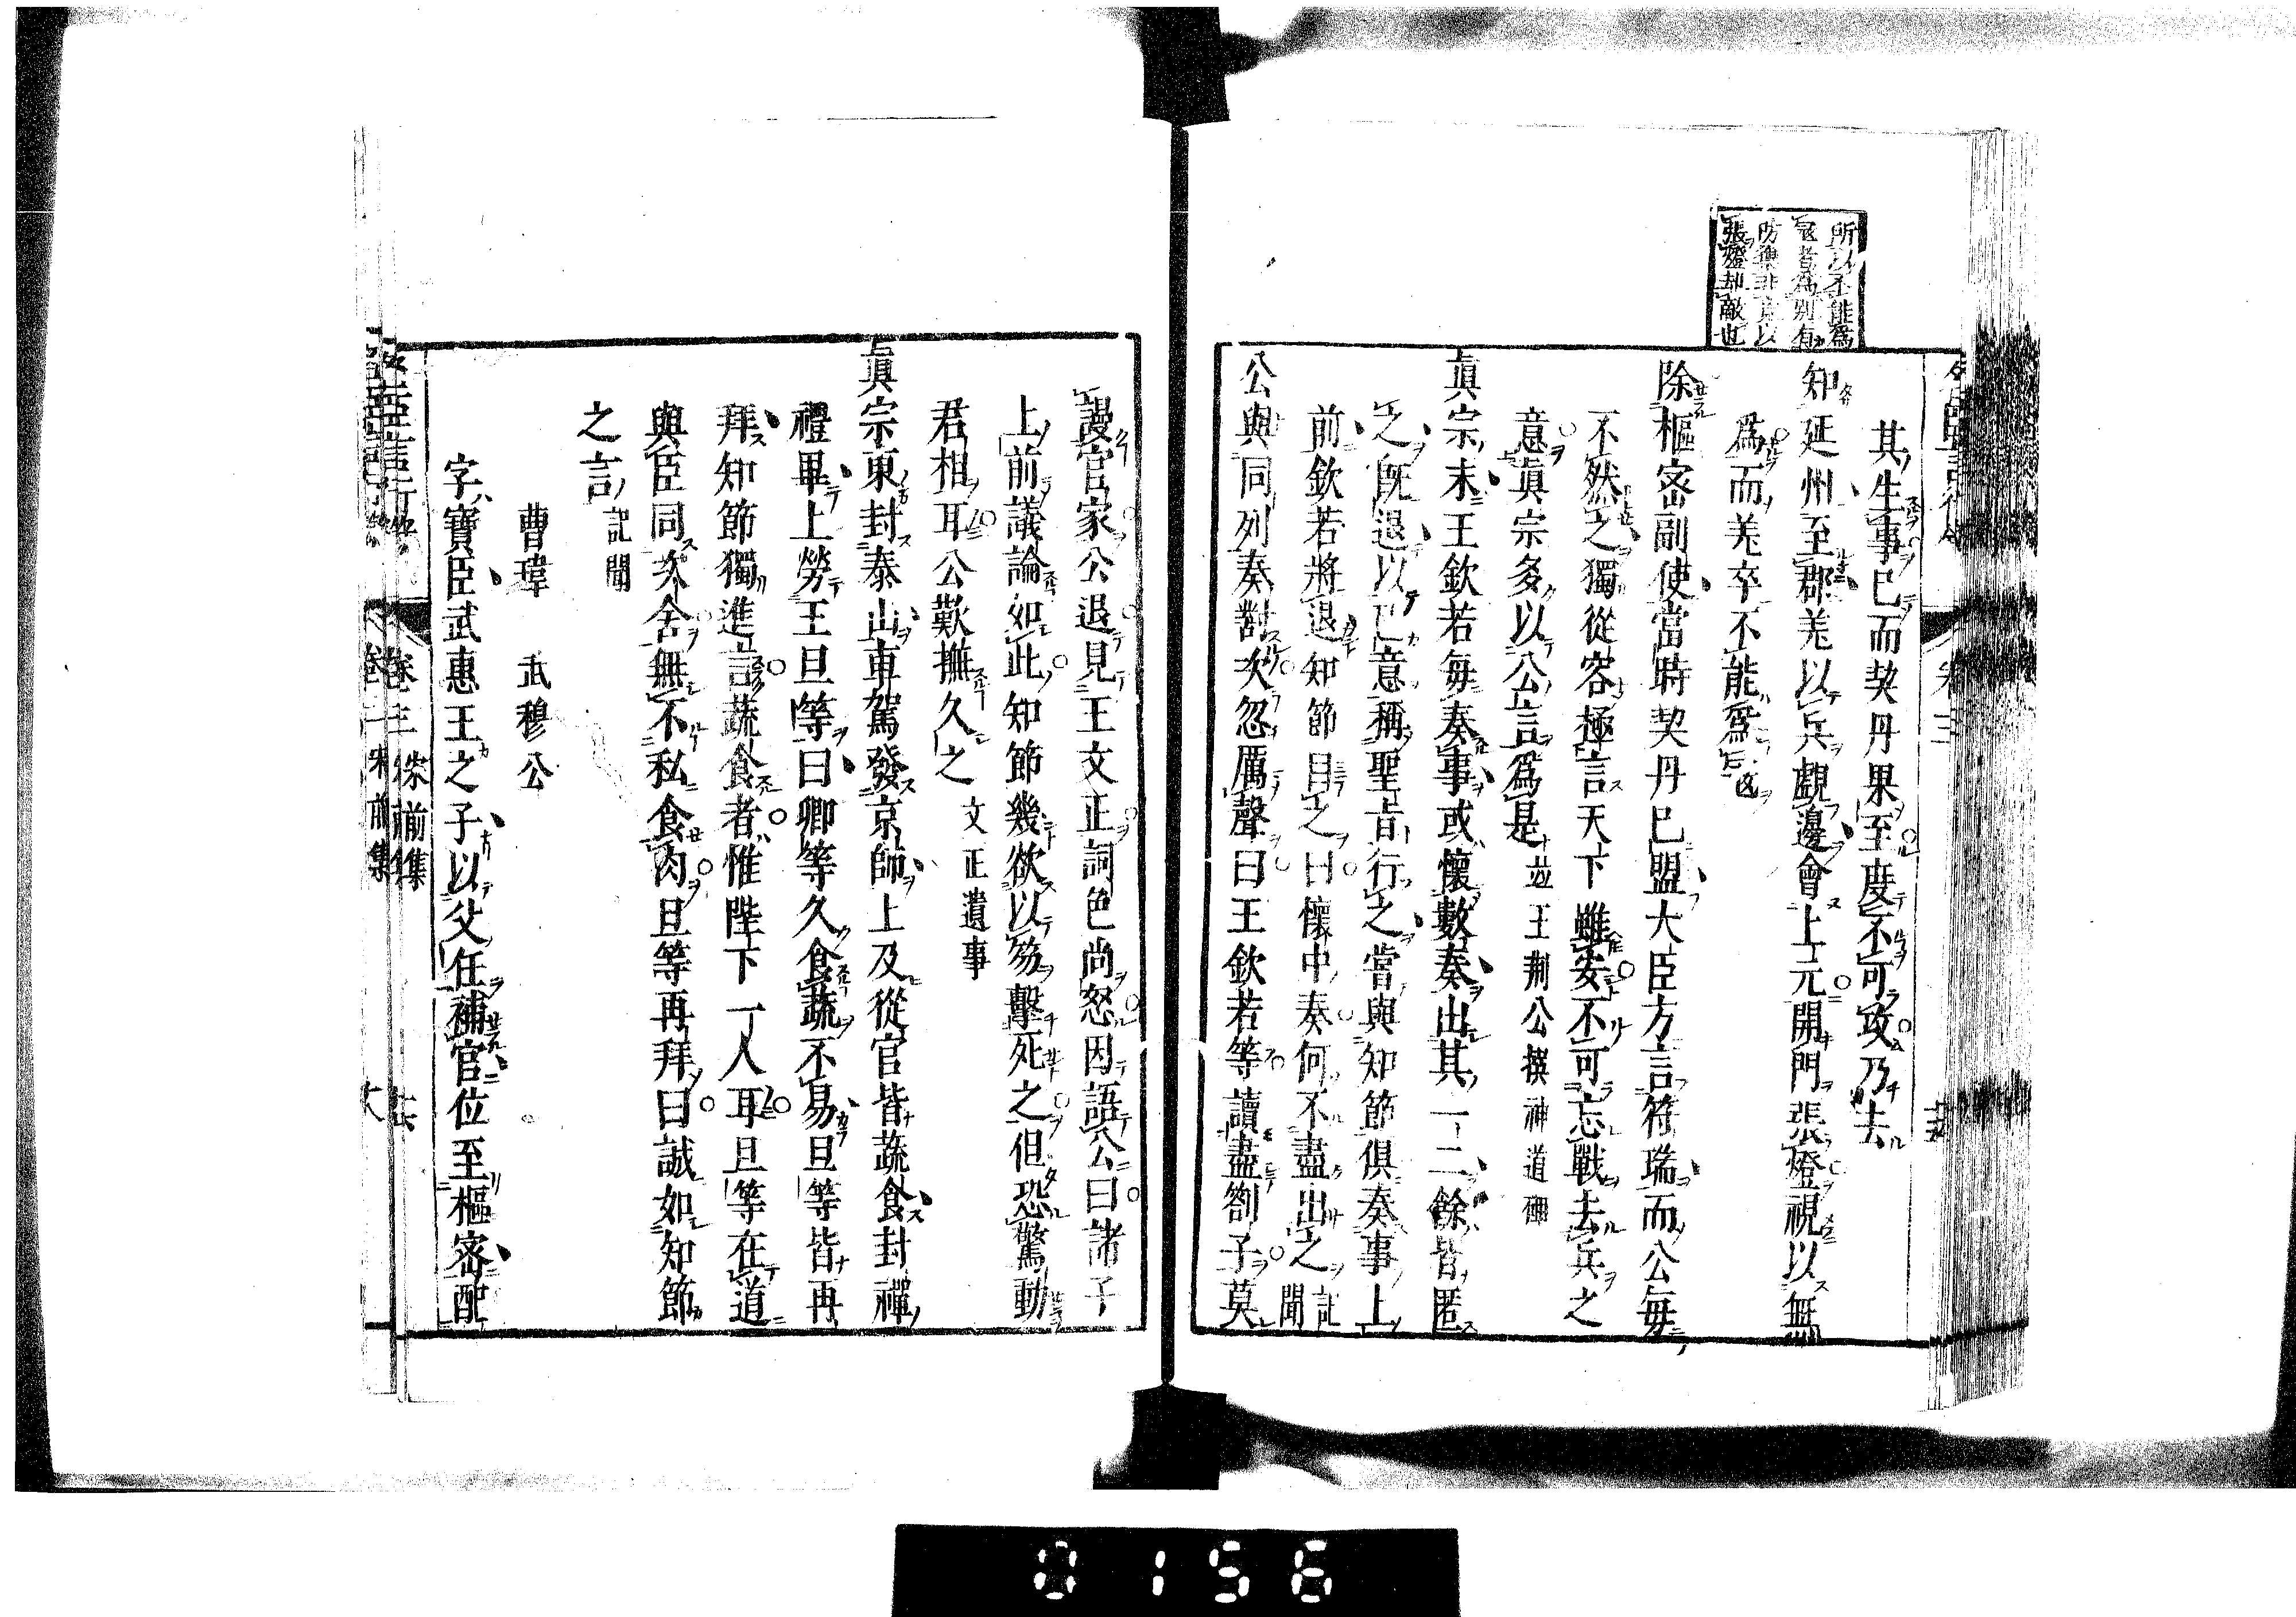 所以不能爲
寇者爲別有
防禦非直以
張燈却敵也
其生事已而契丹果至度不可攻乃去
知延州至郡羌以兵覷邊會上元開門張燈視以無
爲而羌卒不能爲寇
除樞密副使當時契丹已盟大臣方言符瑞而公每
不然之獨從容極言天下雖安不可忘戰去兵之
意眞宗多以公言爲是 並王荆公撰神道碑
眞宗末王欽若每奏事或懷數奏出其一二餘皆匿
之既退以己意稱聖旨行之當與知節俱奏事上
前欽若將退知節目之曰懷中奏何不盡出之 記聞
公與同列奏對次忽厲聲曰王欽若等讀盡劄子莫
謾官家公退見王文正詞色尚怒因語公曰諸子
上前議論如此知節幾欲以笏擊死之但恐驚動
君相耳公歎撫久之 文正遺事
眞宗東封泰山車駕發京師上及從官皆蔬食封禪
禮畢上勞王旦等曰卿等久食蔬不易旦等皆再
拜知節獨進言蔬食者惟陛下一人耳旦等在道
與臣同次舍無不私食肉旦等再拜曰誠如知節
之言 記聞
曹瑋 武穆公
字寶臣武惠王之子以父任補官位至樞密配
卷三 宋前集
0156